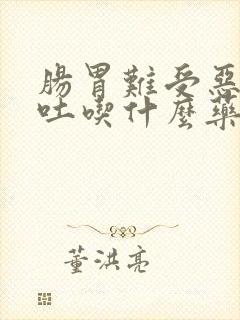 腸胃難受惡
吐喫什麼藥
董洪亮